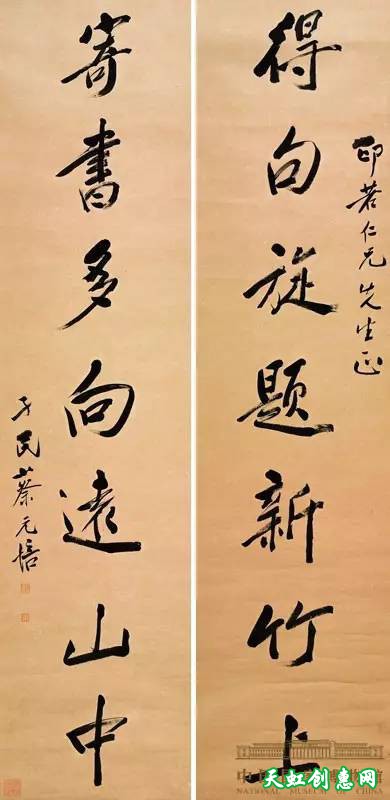 得句旋題新竹上
印若仁兄先生正
寄書多向遠山中
孑民蔡元培
NATIONAL MUSEUM OF CHINA
天虹创惠网